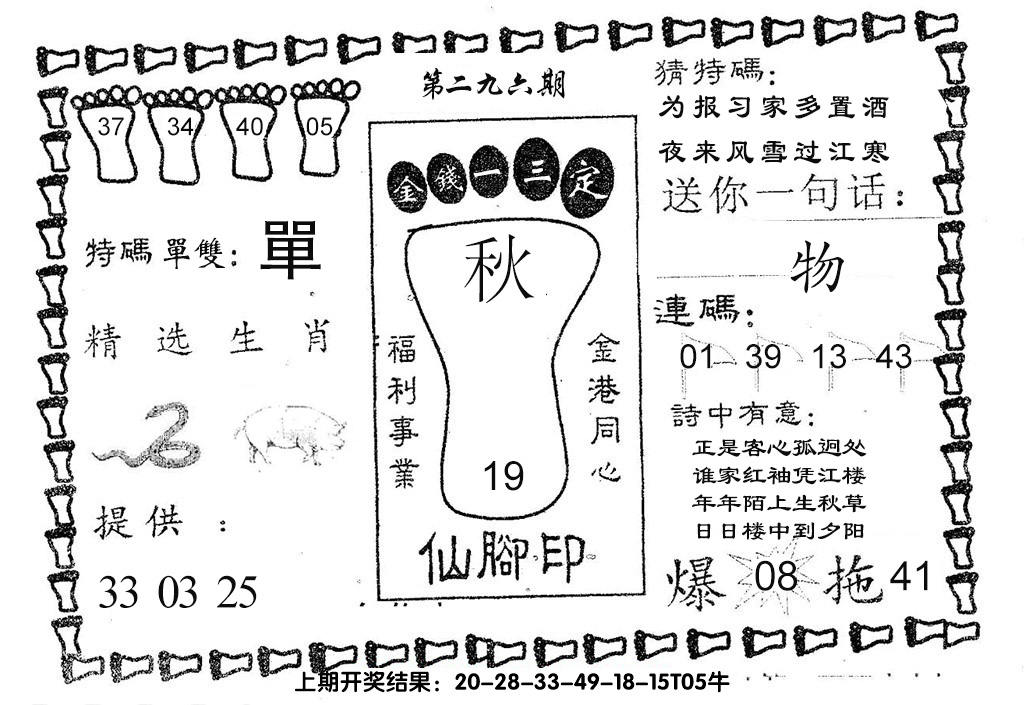 第二九六期
37 34 40 05
特碼單雙：單
精选生肖
提供：
33 03 25
金錢一三定
秋
福利事業
金港同心
19
仙腳印
猜特碼：
为报习家多置酒
夜来风雪过江寒
送你一句话：
物
連碼：
01 39 13 43
詩中有意：
正是客心孤迥处
谁家红袖凭江楼
年年陌上生秋草
日日楼中到夕阳
爆 08 拖 41
上期开奖结果：20-28-33-49-18-15T05牛